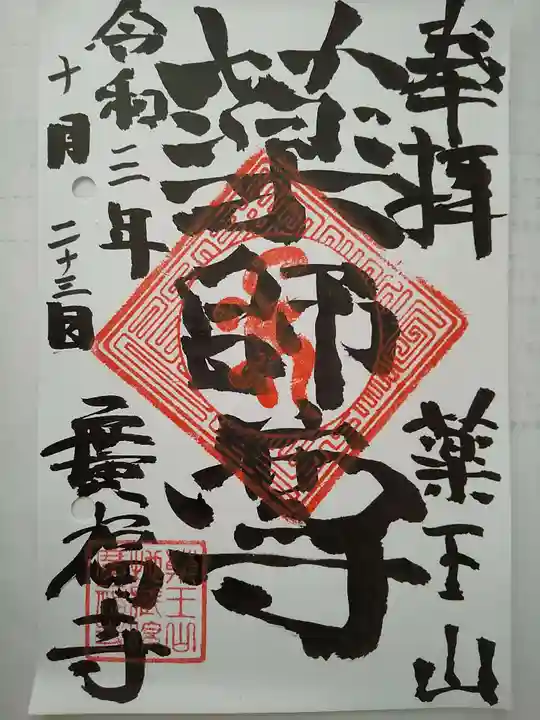 奉拝
薬王山
薬師尊
令和三年
十月二十三日
廣福寺